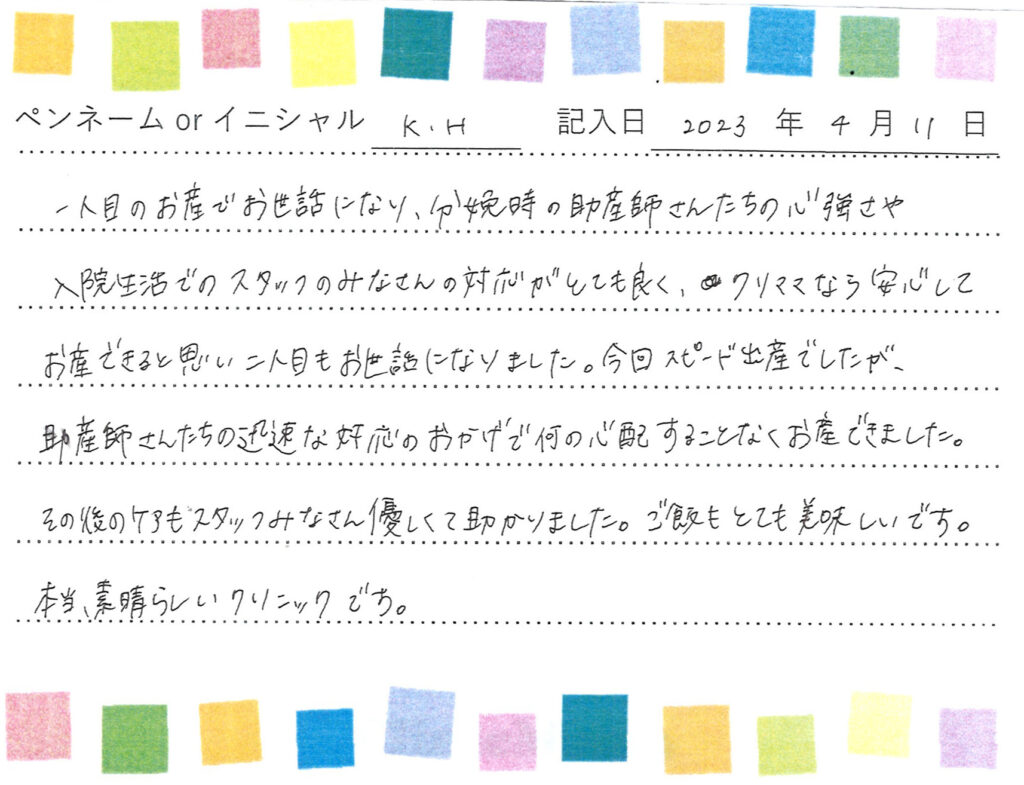 ペンネーム or イニシャル K.H 記入日 2023 年 4 月 11 日
一人目のお産でお世話になり、分娩時の助産師さんたちの心強さや
入院生活でのスタッフのみなさんの対応がとても良く、クリママなら安心して
お産できると思い二人目もお世話になりました。今回スピード出産でしたが、
助産師さんたちの迅速な対応のおかげで何の心配することなくお産できました。
その後のケアもスタッフみなさん優しくて助かりました。ご飯もとても美味しいです。
本当、素晴らしいクリニックです。